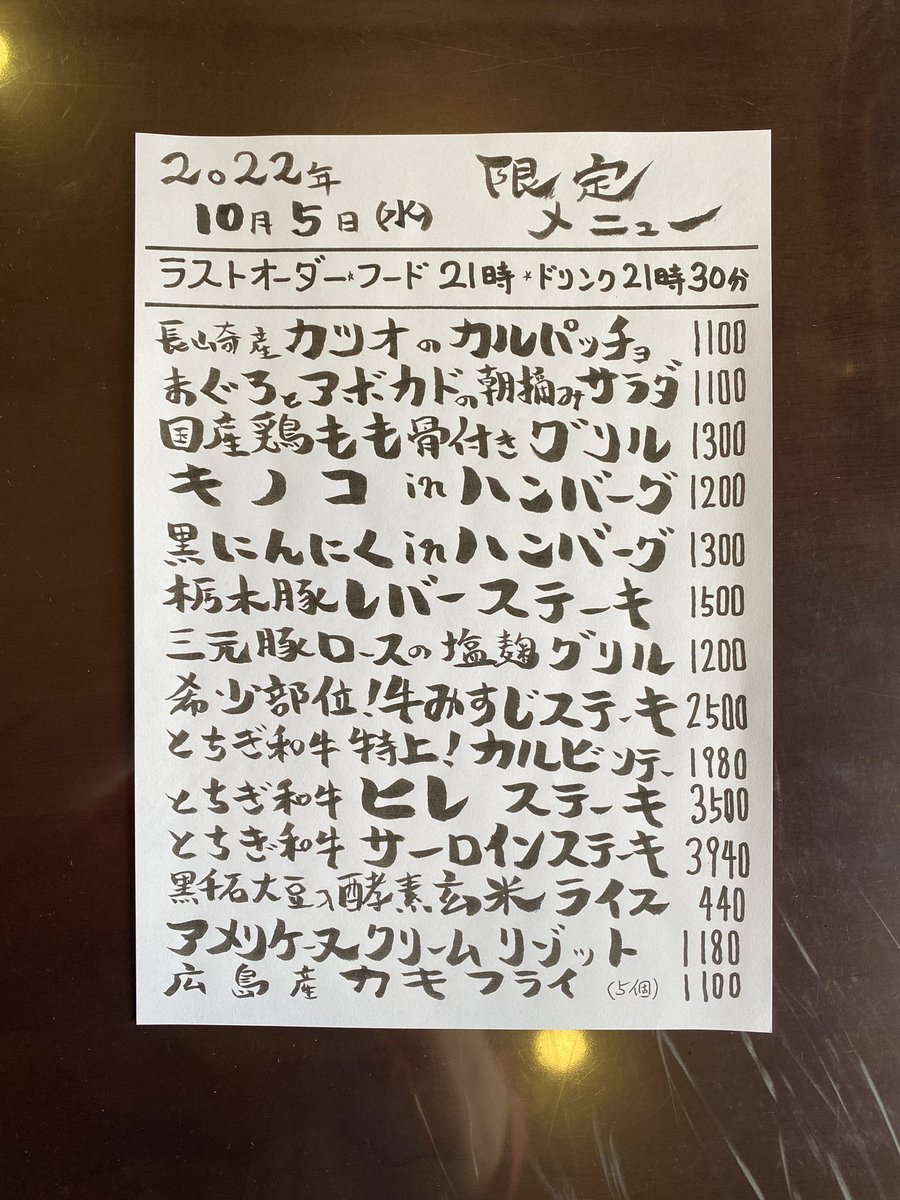 2022年
限定
10月5日(水)
メニュー
ラストオーダー*フード21時*ドリンク21時30分
長崎産カツオのカルパッチョ 1100
まぐろとアボカドの朝摘みサラダ 1100
国産鶏もも骨付きグリル 1300
キノコinハンバーグ 1200
黒にんにくinハンバーグ 1300
栃木豚レバーステーキ 1500
三元豚ロースの塩麹グリル 1200
希少部位!牛みすじステーキ 2500
とちぎ和牛特上!カルビソテー 1980
とちぎ和牛ヒレステーキ 3500
とちぎ和牛サーロインステーキ 3940
黒千石大豆入酵素玄米ライス 440
アメリケーヌクリームリゾット 1180
広島産カキフライ(5個) 1100